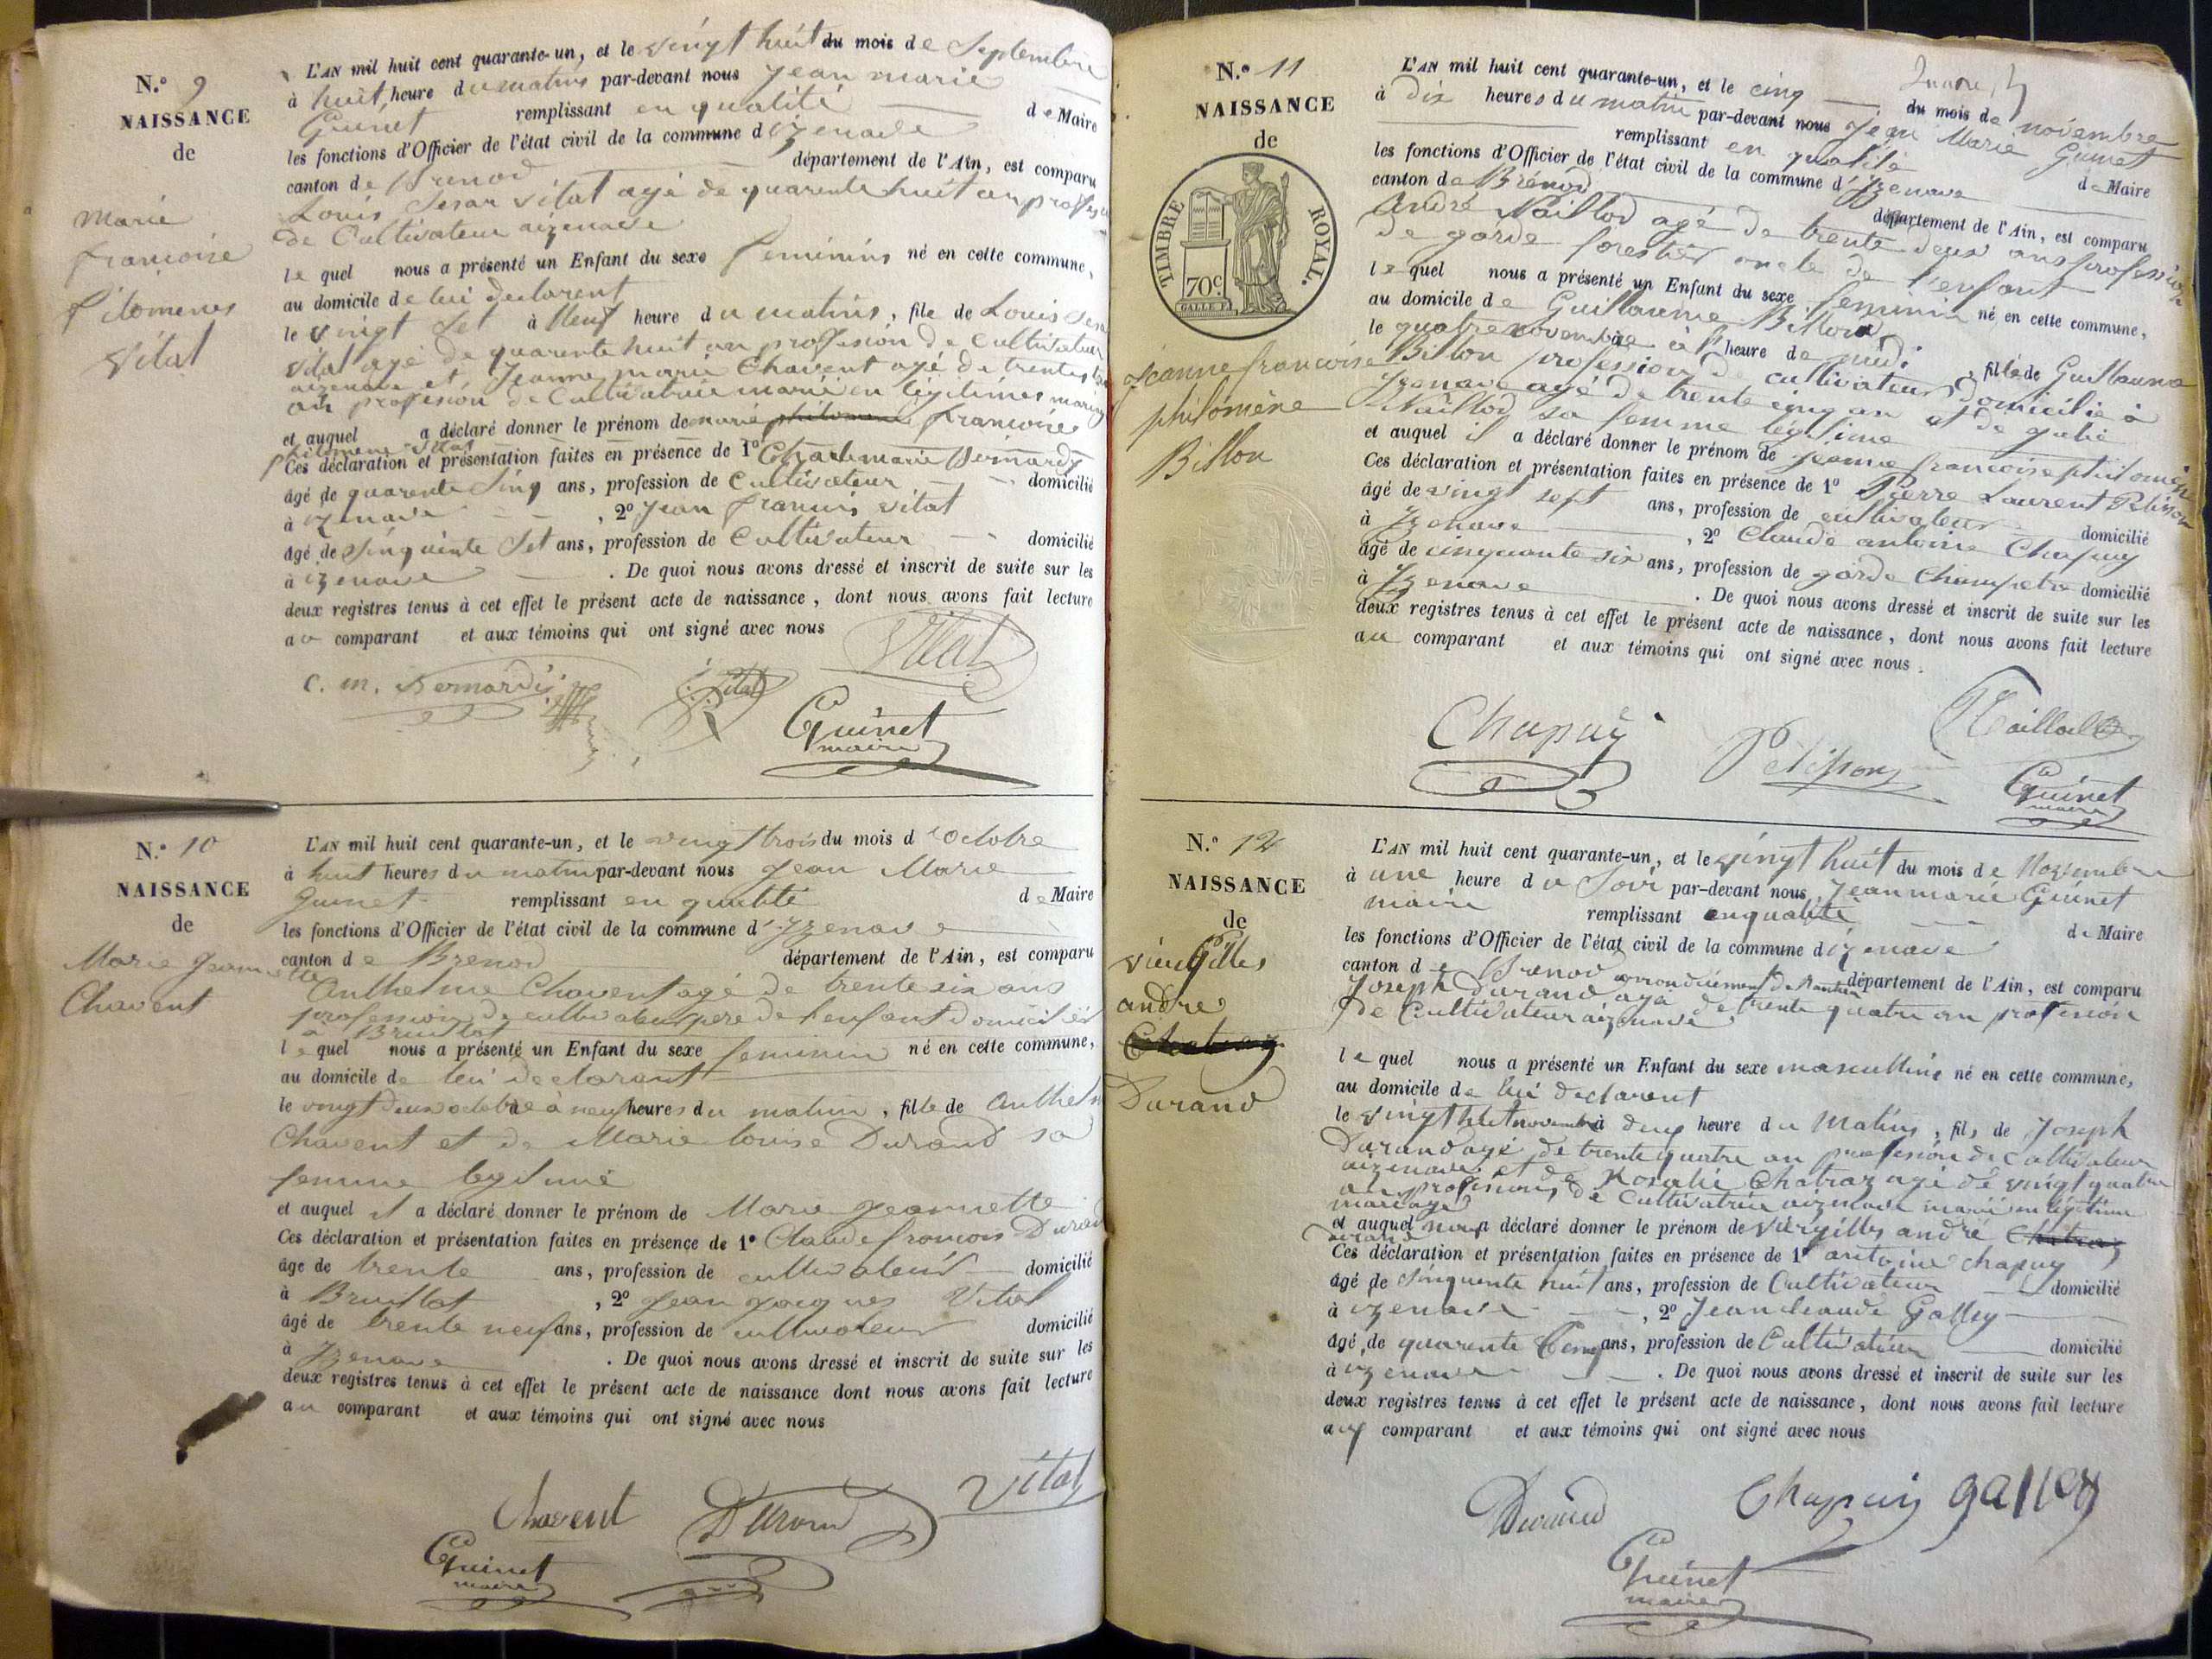 N.o 9
NAISSANCE
de
Marie
francoise
filomenes
Vital
L'AN mil huit cent quarante-un, et le vingt huit du mois de Septembre
à huit heure du matins par-devant nous Jean marie
Guinet remplissant en qualité de Maire
les fonctions d'Officier de l'état civil de la commune dizenave
canton de Brenod département de l'Ain, est comparu
Louis Sesar Vital agé de quarente huit an
de Cultivateur aizenave
le quel nous a présenté un Enfant du sexe feminins né en cette commune,
au domicile de lui declarent
le vingt Set à Neuf heure du matins, file de Louis
Vital agé de quarente huit an profesion de Cultivateur
aizenave et Jeanne marie Chavent agé de trente
an profesion de Cultivatrice marié en légitimes
et auquel a déclaré donner le prénom de marie philomene francoise
filomene Vital
Ces déclaration et présentation faites en présence de 1o Charle marie Bernardy
âgé de quarente Sinq ans, profession de Cultivateur domicilié
à izenave, 2o Jean francois Vital
âgé de Sinquente Set ans, profession de Cultivateur domicilié
à izenave. De quoi nous avons dressé et inscrit de suite sur les
deux registres tenus à cet effet le présent acte de naissance, dont nous avons fait lecture
au comparant et aux témoins qui ont signé avec nous
Vital
C. m. Bernardy Vital
Guinet
maire
N.o 10
NAISSANCE
de
Marie Jeannette
Chavent
L'AN mil huit cent quarante-un, et le vingt trois du mois d'octobre
à huit heures du matin par-devant nous Jean Marie
Guinet remplissant en qualité de Maire
les fonctions d'Officier de l'état civil de la commune d'Izenave
canton de Brenod département de l'Ain, est comparu
Anthelme Chavent agé de trente six ans
profession de cultivateur pere de l'enfant domicilié
à Bruillat
le quel nous a présenté un Enfant du sexe feminin né en cette commune,
au domicile de lui declarant
le vingt deux octobre à neuf heures du matin, fille de Anthelme
Chavent et de Marie louise Durand sa
femme legitime
et auquel il a déclaré donner le prénom de Marie Jeannette
Ces déclaration et présentation faites en présence de 1o Claude francois Durand
âgé de trente ans, profession de cultivateur domicilié
à Bruillat, 2o Jean Jacques Vital
âgé de trente neuf ans, profession de cultivateur domicilié
à Izenave. De quoi nous avons dressé et inscrit de suite sur les
deux registres tenus à cet effet le présent acte de naissance dont nous avons fait lecture
au comparant et aux témoins qui ont signé avec nous
Chavent Durand Vital
Guinet
maire
N.o 11
NAISSANCE
de
TIMBRE ROYAL.
70c
Jeanne francoise
philomène
Billon
L'AN mil huit cent quarante-un, et le cinq du mois de novembre
à dix heures du matin par-devant nous Jean Marie Guinet
remplissant en qualité de Maire
les fonctions d'Officier de l'état civil de la commune d'Izenave
canton de Brénod département de l'Ain, est comparu
André Naillod agé de trente deux ans profession
de garde forestier oncle de l'enfant
le quel nous a présenté un Enfant du sexe feminin né en cette commune,
au domicile de Guillaume Billon
le quatre novembre à heure de midi, fille de Guillaume
Billon profession de cultivateur domicilié à
Izenave agé de trente cinq an et de
Naillod sa femme légitime
et auquel il a déclaré donner le prénom de Jeanne francoise philomène
Ces déclaration et présentation faites en présence de 1o Pierre Laurent Pelisson
âgé de vingt sept ans, profession de cultivateur domicilié
à Izenave, 2o Claude antoine Chapuy
âgé de cinquante six ans, profession de garde Champetre domicilié
à Izenave. De quoi nous avons dressé et inscrit de suite sur les
deux registres tenus à cet effet le présent acte de naissance, dont nous avons fait lecture
au comparant et aux témoins qui ont signé avec nous.
Chapuy Pelisson Naillod
Guinet
maire
N.o 12
NAISSANCE
de
andre
Durand
L'AN mil huit cent quarante-un, et le vingt huit du mois de Novembre
à une heure du Soir par-devant nous Jean marie Guinet
maire remplissant enqualité de Maire
les fonctions d'Officier de l'état civil de la commune dizenave
canton de Brenod arrondisement de Nantua département de l'Ain, est comparu
Joseph Durand agé de trente quatre an profesion
de Cultivateur aizenave
le quel nous a présenté un Enfant du sexe masculline né en cette commune,
au domicile de lui declarent
le vingt huit novembre à deux heure du Matins, fils de Joseph
Durand agé de trente quatre an profesion de Cultivateur
aizenave et de Rosalie Chatraz agé de vingt quatre
an profesions de Cultivatrice aizenave marié en légitime
mariage
et auquel nous a déclaré donner le prénom de andré Chatraz
Durand
Ces déclaration et présentation faites en présence de 1o antoine chapuy
âgé de Sinquente huit ans, profession de Cultivateur domicilié
à izenave, 2o Jean Claude Galley
âgé de quarente Cinq ans, profession de Cultivateur domicilié
à izenave. De quoi nous avons dressé et inscrit de suite sur les
deux registres tenus à cet effet le présent acte de naissance, dont nous avons fait lecture
aux comparant et aux témoins qui ont signé avec nous
Durand Chapuis galley
Guinet
maire